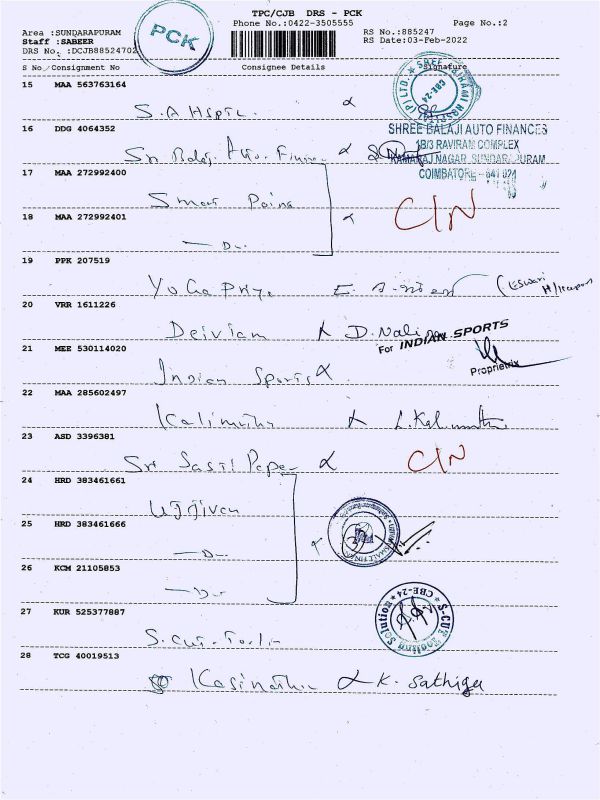 TPC/CJB DRS - PCK
Phone No.:0422-3505555
Page No.:2
Area :SUNDARAPURAM
RS No.:885247
Staff :SABEER
RS Date:03-Feb-2022
DRS No. :DCJB88524702
PCK
S No/Consignment No Consignee Details Signature
15 MAA 563763164
S.A Hsptl.
16 DDG 4064352
SHREE BALAJI AUTO FINANCES
18/3 RAVIRAM COMPLEX
KAMARAJ NAGAR, SUNDARAPURAM
COIMBATORE - 641 024
Sri Balaji Auto Finan
17 MAA 272992400
Smart Poins
CIN
18 MAA 272992401
— Do
19 PPK 207519
Yoga Priya
(Eswari
20 VRR 1611226
D. Nali
For INDIAN SPORTS
Proprietrix
21 MEE 530114020
Indian Sports
22 MAA 285602497
Kalimuthu
23 ASD 3396381
Sri Sasti Paper
CIN
24 HRD 383461661
Ujjivan
25 HRD 383461666
— Do
26 KCM 21105853
— Do
27 KUR 525377887
S-CUT Tooling Solution
CBE-24
S.cut Toolin
28 TCG 40019513
Kasinathan K. Sathiya